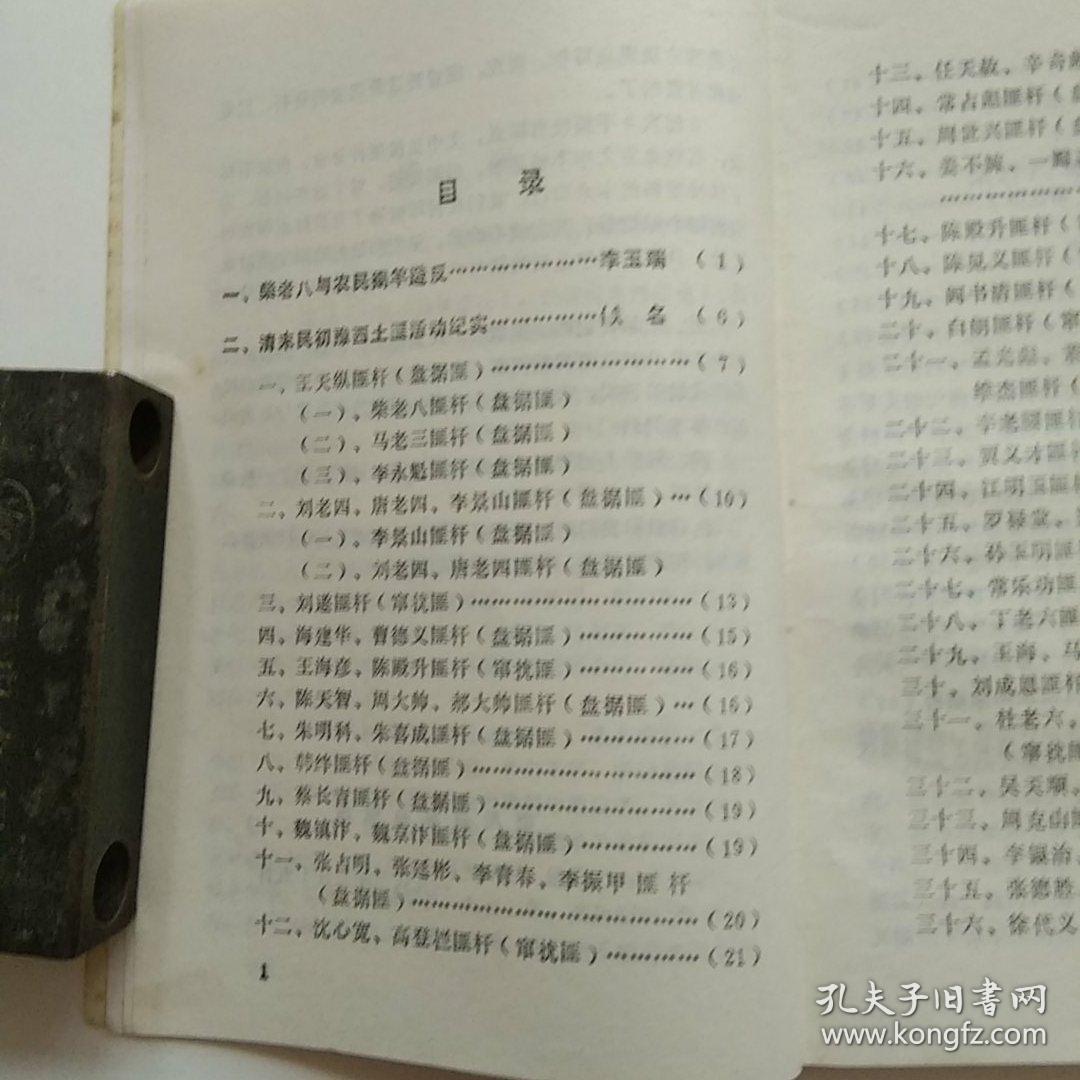 目 录
一、柴老八与农民揭竿造反……………………李玉瑞 (1)
二、清末民初豫西土匪活动纪实……………佚 名 (6)
一、王天纵匪杆(盘据匪)……………………………(7)
(一)、柴老八匪杆(盘据匪)
(二)、马老三匪杆(盘据匪)
(三)、李永魁匪杆(盘据匪)
二、刘老四、唐老四、李景山匪杆(盘据匪)…(10)
(一)、李景山匪杆(盘据匪)
(二)、刘老四、唐老四匪杆(盘据匪)
三、刘遂匪杆(窜扰匪)……………………………(13)
四、海建华、曹德义匪杆(盘据匪)………………(15)
五、王海彦、陈殿升匪杆(窜扰匪)………………(16)
六、陈天智、周大帅、郝大帅匪杆(盘据匪)…(16)
七、朱明科、朱喜成匪杆(盘据匪)………………(17)
八、韩 匪杆(盘据匪)……………………………(18)
九、蔡长青匪杆(盘据匪)…………………………(19)
十、魏镇汴、魏京汴匪杆(盘据匪)………………(19)
十一、张占明、张廷彬、李青春、李振甲匪杆
(盘据匪)……………………………………(20)
十二、沈心宽、高登栏匪杆(窜扰匪)……………(21)
1
十三、任天敬、辛奇
十四、常占彪匪杆(
十五、周世兴匪杆(
十六、姜不婉、一
……………………
十七、陈殿升匪杆(
十八、陈见义匪杆(
十九、阎书唐匪杆(
二十、白朗匪杆(窜
二十一、孟 彪、
维杰匪杆(
二十二、李老 匪杆
二十三、贾义才匪杆
二十四、江明玉匪杆
二十五、罗禄堂、
二十六、孙玉明匪杆
二十七、常乐功匪
二十八、丁老六匪
二十九、王海、马
三十、刘成恩匪杆
三十一、杜老六、
(窜扰匪
三十二、吴天顺、
三十三、周克山匪
三十四、李银治、
三十五、张德胜
三十六、徐代义
孔夫子旧书网
www.kongfz.com